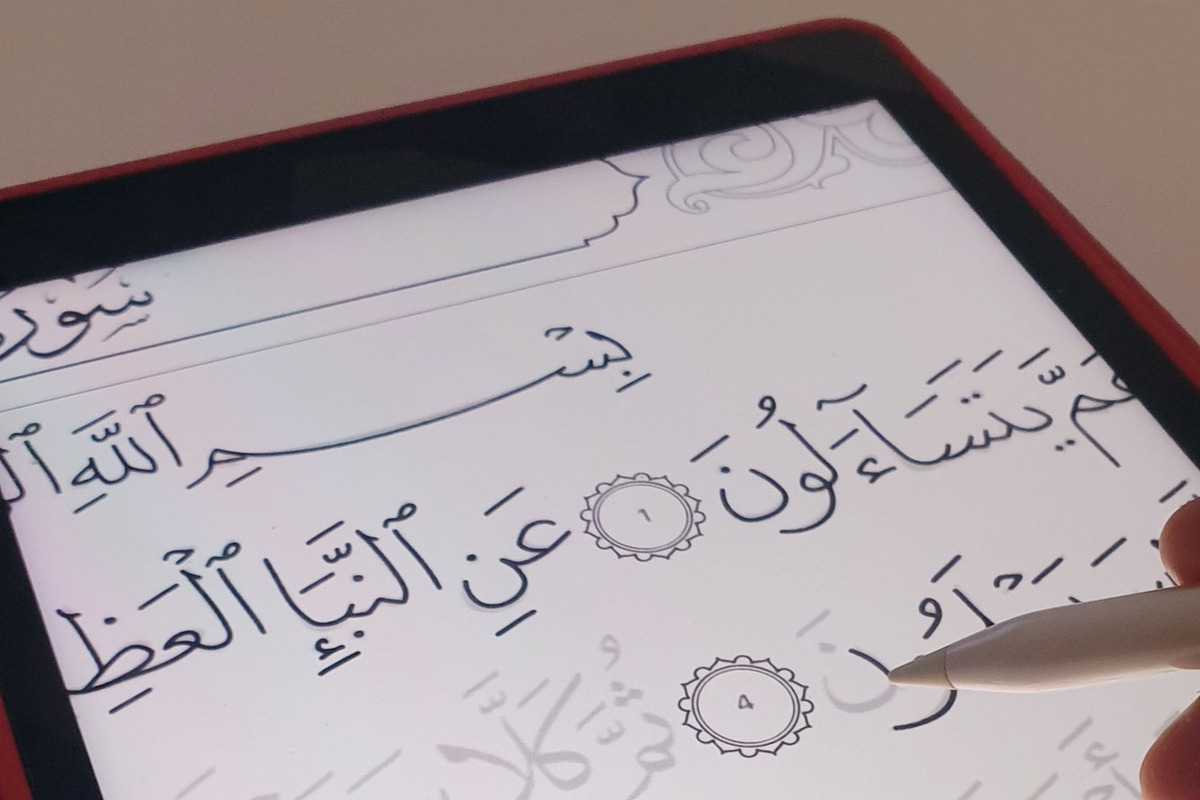 سُورَة
بِسْمِ ٱللَّهِ
عَمَّ يَتَسَآءَلُونَ ١ عَنِ ٱلنَّبَإِ ٱلْعَظِ
ونَ ٤ ثُمَّ كَلَّا